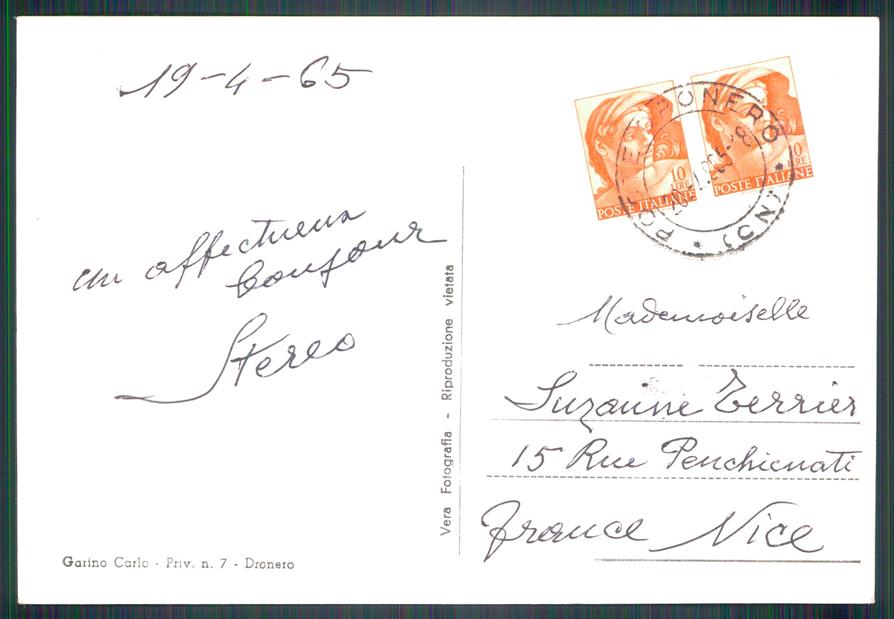 19-4-65
un affectueux
bonjour
Stereo
Vera Fotografia - Riproduzione vietata
Garino Carlo - Priv. n. 7 - Dronero
10
LIRE
POSTE ITALIANE
10
LIRE
POSTE ITALIANE
DRONERO
(CN)
Mademoiselle
Suzanne Terrier
15 Rue Penchienati
France Nice